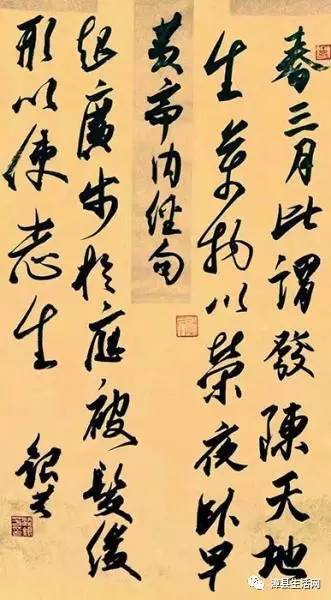 春三月此謂發陳天地
生萬物以榮夜卧早
黄帝内經句
起廣步於庭被髮緩
形以使志生
漳县生活网